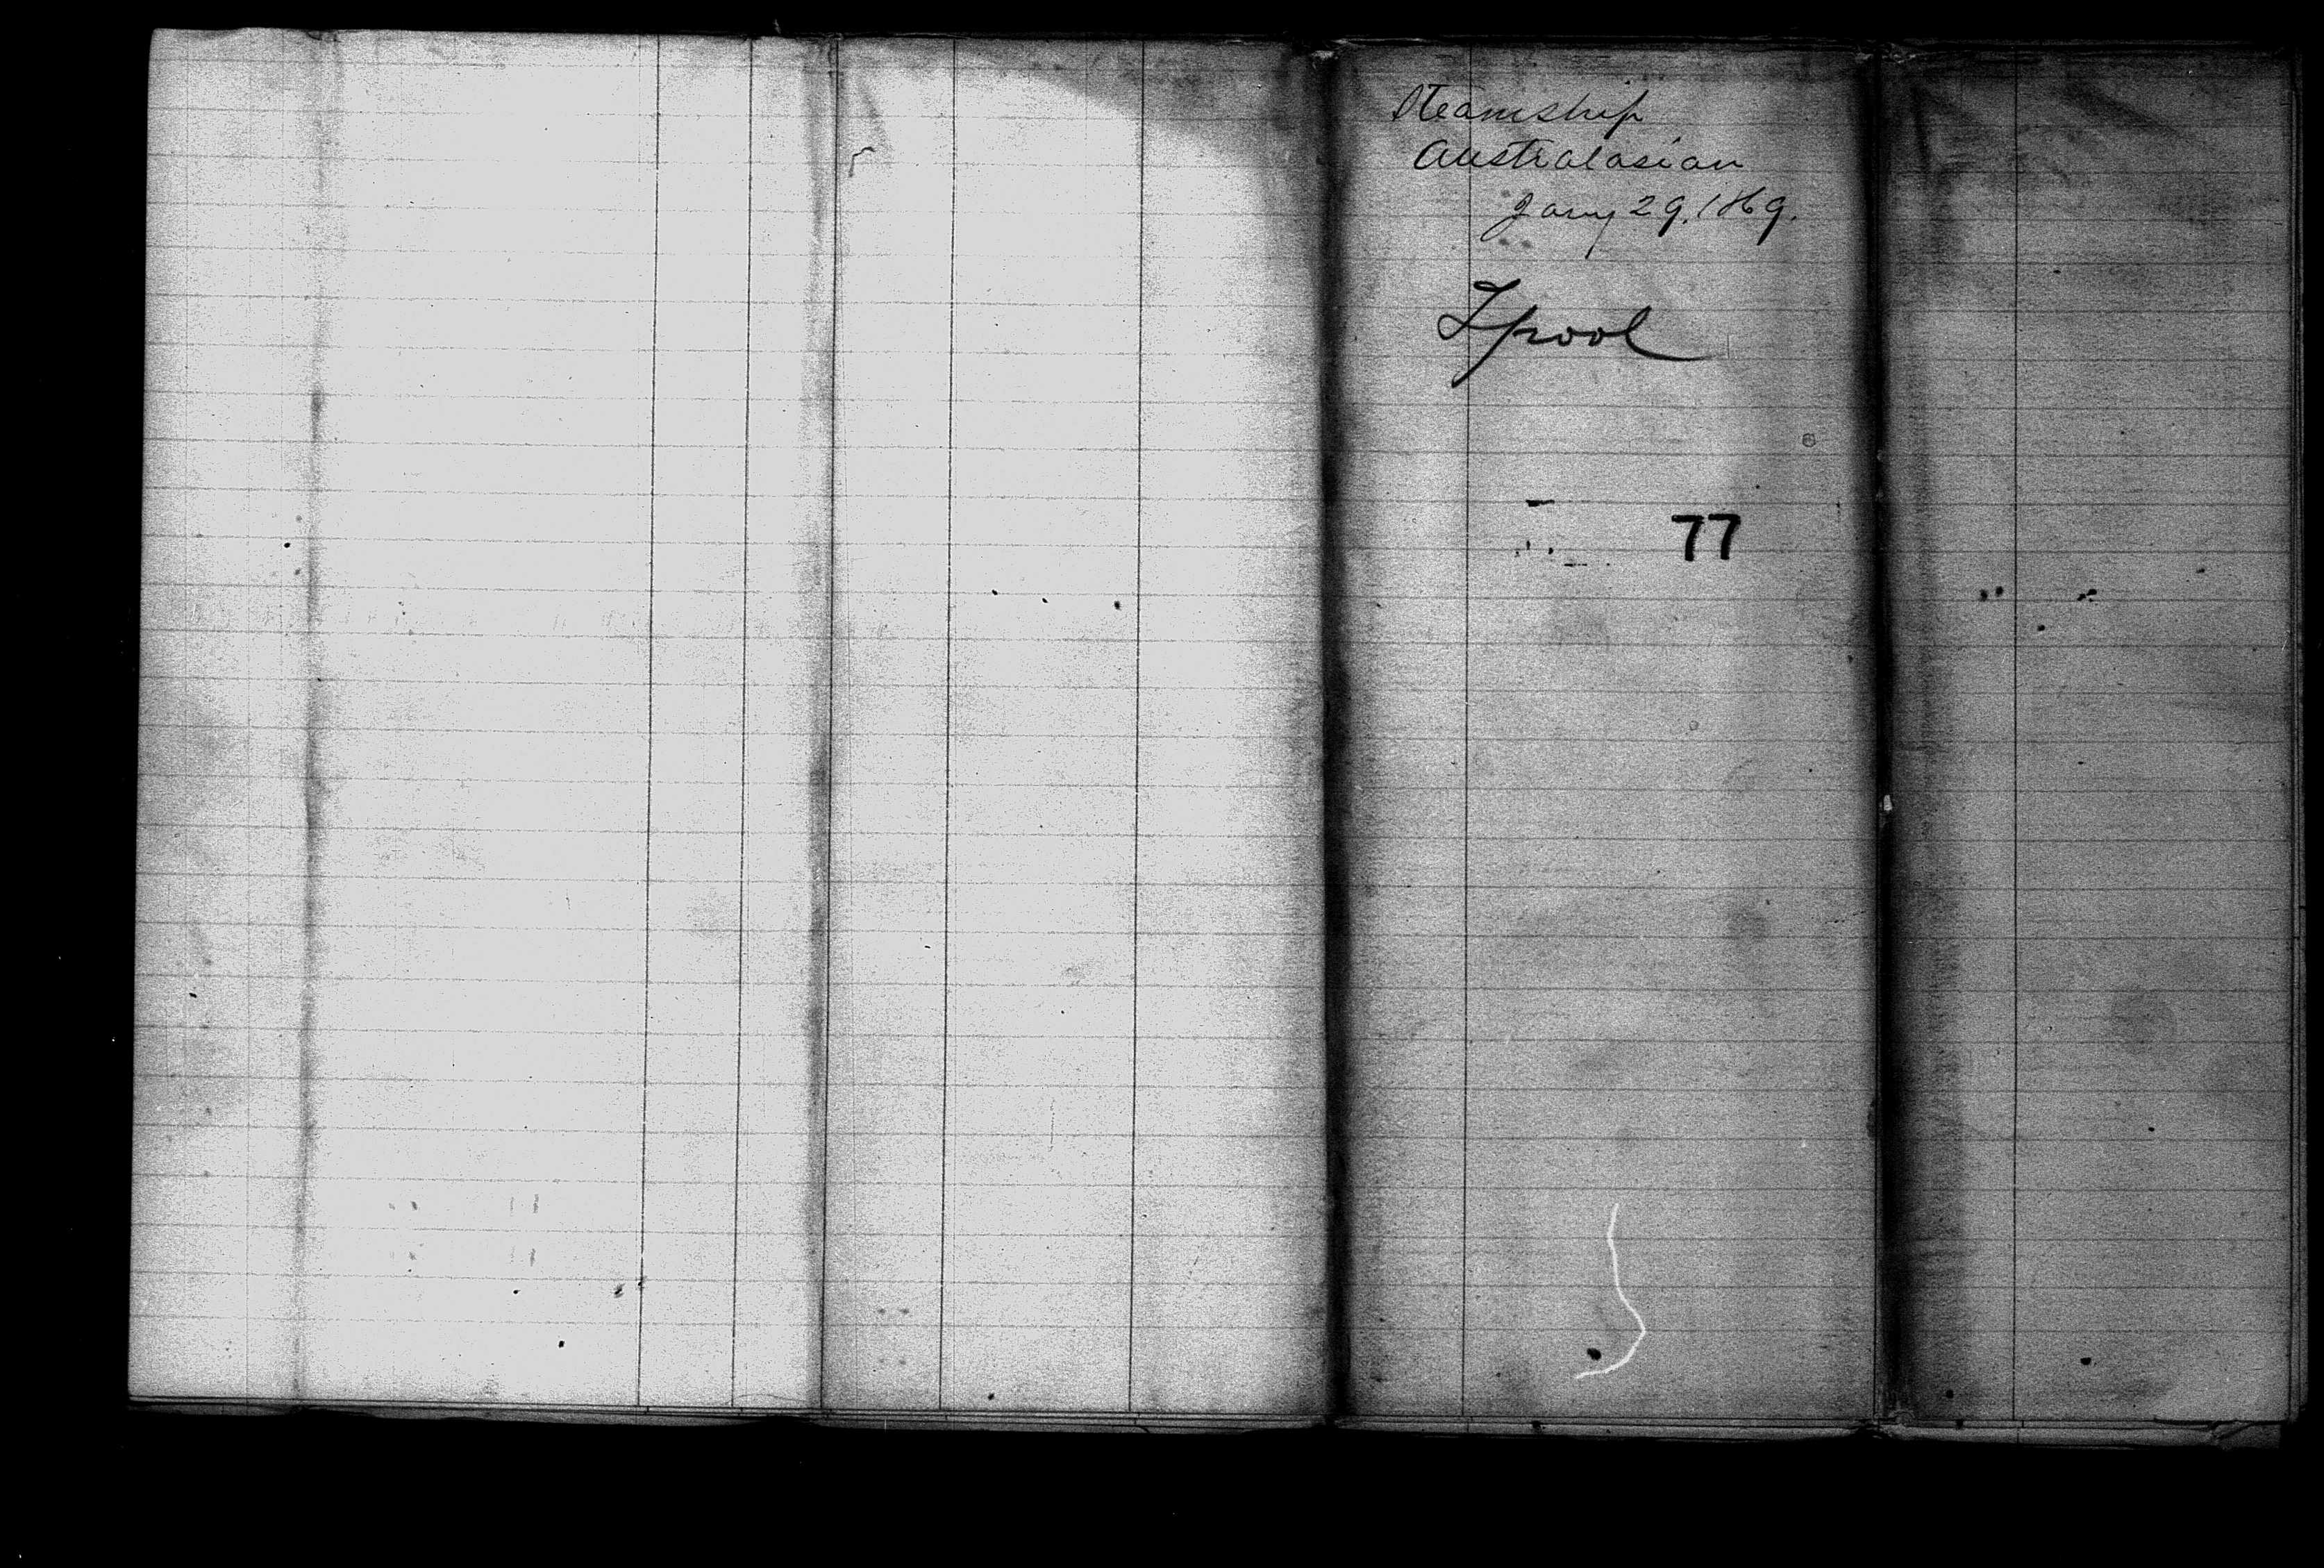 Steamship
Australasian
Jany 29. 1869.
Lpool
77